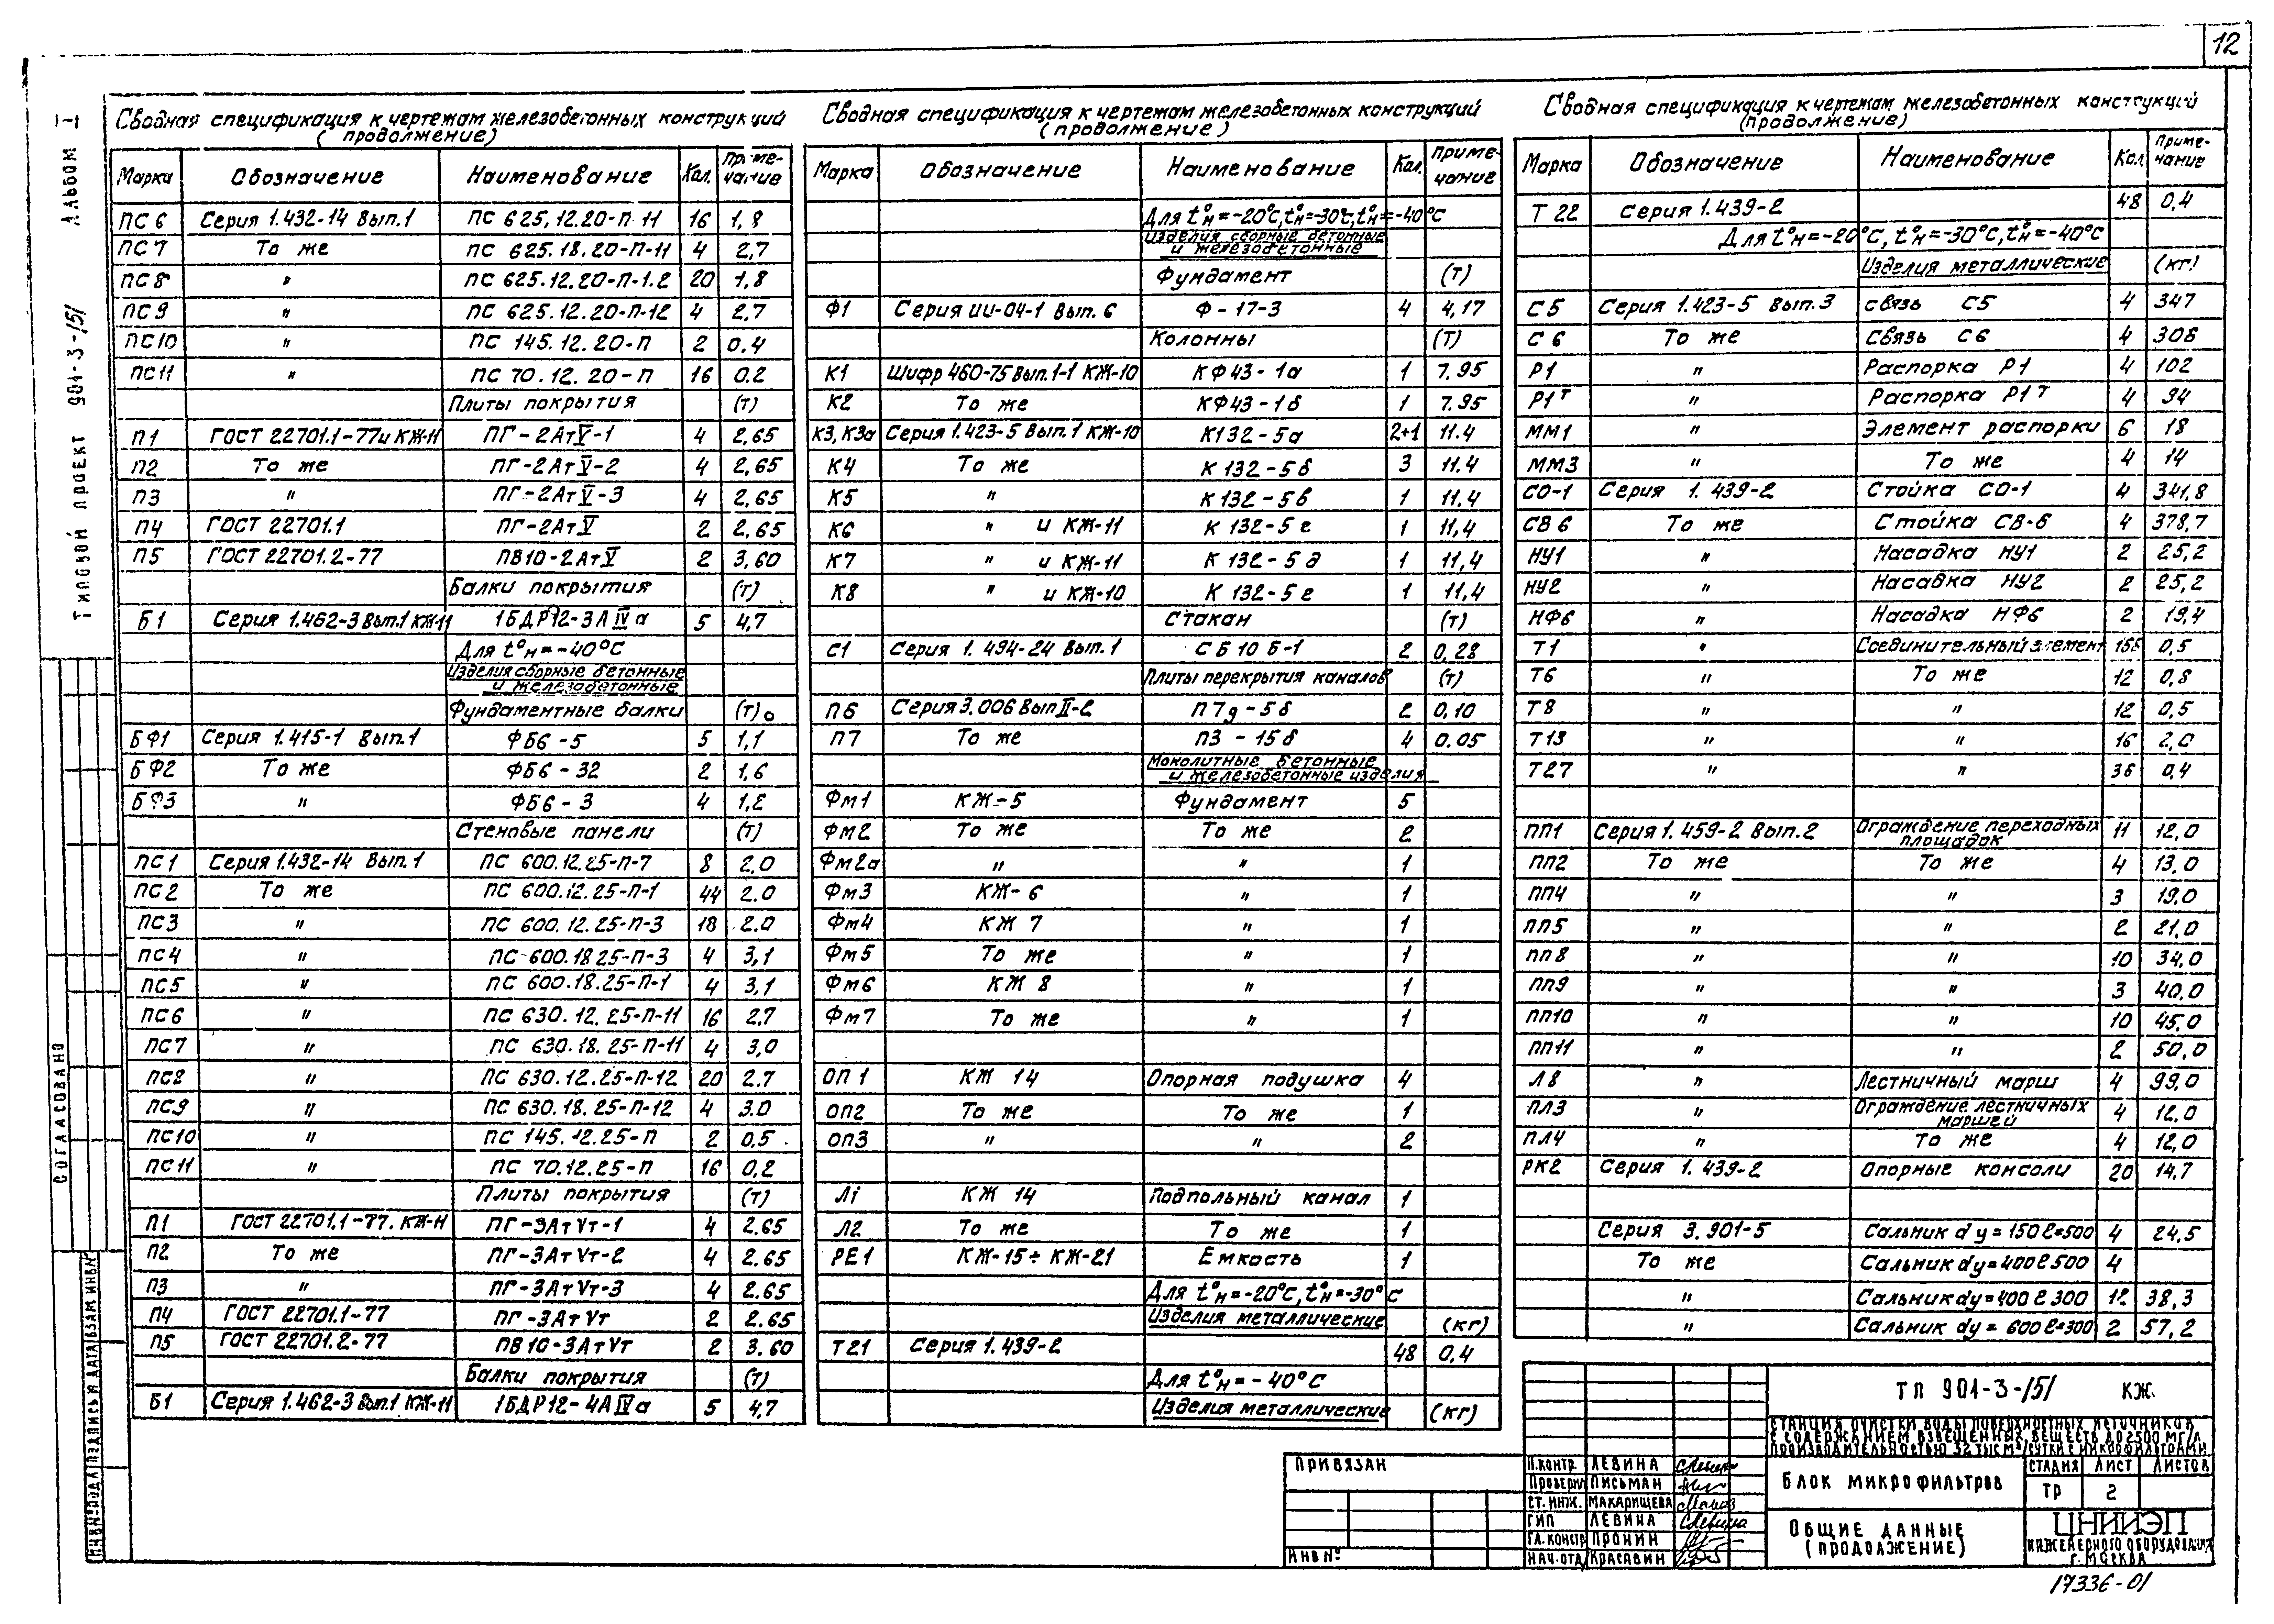 12
Альбом I
Типовой проект 901-3-151
Согласовано
Сводная спецификация к чертежам железобетонных конструкций
(продолжение)
Марка Обозначение Наименование Кол. Примечание
ПС6 Серия 1.432-14 Вып.1 ПС 625.12.20-П-11 16 1,8
ПС7 То же ПС 625.18.20-П-11 4 2,7
ПС8 " ПС 625.12.20-П-1.2 20 1,8
ПС9 " ПС 625.12.20-П-12 4 2,7
ПС10 " ПС 145.12.20-П 2 0,4
ПС11 " ПС 70.12.20-П 16 0.2
Плиты покрытия (т)
П1 ГОСТ 22701.1-77 и КЖ-11 ПГ-2АтV-1 4 2,65
П2 То же ПГ-2АтV-2 4 2,65
П3 " ПГ-2АтV-3 4 2,65
П4 ГОСТ 22701.1 ПГ-2АтV 2 2,65
П5 ГОСТ 22701.2-77 ПВ10-2АтV 2 3,60
Балки покрытия (т)
Б1 Серия 1.462-3 Вып.1 КЖ-11 1БДР12-3АIVа 5 4,7
Для t°н=-40°С
Изделия сборные бетонные
и железобетонные
Фундаментные балки (т)
БФ1 Серия 1.415-1 Вып.1 ФБ6-5 5 1,1
БФ2 То же ФБ6-32 2 1,6
БФ3 " ФБ6-3 4
Стеновые панели (т)
ПС1 Серия 1.432-14 Вып.1 ПС 600.12.25-П-7 8 2.0
ПС2 То же ПС 600.12.25-П-1 44 2.0
ПС3 " ПС 600.12.25-П-3 18 2.0
ПС4 " ПС-600.18 25-П-3 4 3,1
ПС5 " ПС 600.18.25-П-1 4 3,1
ПС6 " ПС 630.12.25-П-11 16 2,7
ПС7 " ПС 630.18.25-П-11 4 3,0
ПС8 " ПС 630.12.25-П-12 20 2.7
ПС9 " ПС 630.18.25-П-12 4 3.0
ПС10 " ПС 145.12.25-П 2 0,5
ПС11 " ПС 70.12.25-П 16 0,2
Плиты покрытия (т)
П1 ГОСТ 22701.1-77. КЖ-11 ПГ-3АтVт-1 4 2.65
П2 То же ПГ-3АтVт-2 4 2.65
П3 " ПГ-3АтVт-3 4 2.65
П4 ГОСТ 22701.1-77 ПГ-3АтVт 2 2.65
П5 ГОСТ 22701.2-77 ПВ10-3АтVт 2 3.60
Балки покрытия (т)
Б1 Серия 1.462-3 Вып.1 КЖ-11 1БДР12-4АIVа 5 4,7
Сводная спецификация к чертежам железобетонных конструкций
(продолжение)
Марка Обозначение Наименование Кол. Примечание
Для t°н=-20°С, t°н=-30°С, t°н=-40°С
Изделия сборные бетонные
и железобетонные
Фундамент (т)
Ф1 Серия ИИ-04-1 Вып. 6 Ф-17-3 4 4,17
Колонны (т)
К1 Шифр 460-75 Вып.1-1 КЖ-10 КФ43-1а 1 7.95
К2 То же КФ43-1б 1 7.95
К3, К3а Серия 1.423-5 Вып.1 КЖ-10 К132-5а 2+1 11.4
К4 То же К 132-5б 3 11.4
К5 " К 132-5в 1 11,4
К6 " и КЖ-11 К 132-5г 1 11,4
К7 " и КЖ-11 К 132-5д 1 11,4
К8 " и КЖ-10 К 132-5е 1 11,4
Стакан (т)
С1 Серия 1.494-24 Вып.1 СБ 10 Б-1 2 0,28
Плиты перекрытия каналов (т)
П6 Серия 3.006 Вып II-2 П7д-5б 2 0,10
П7 То же П3-15б 4 0.05
Монолитные бетонные
и железобетонные изделия
Фм1 КЖ-5 Фундамент 5
Фм2 То же То же 2
Фм2а " " 1
Фм3 КЖ-6 " 1
Фм4 КЖ 7 " 1
Фм5 То же " 1
Фм6 КЖ 8 " 1
Фм7 То же " 1
ОП1 КЖ 14 Опорная подушка 4
ОП2 То же То же 1
ОП3 " " 2
Л1 КЖ 14 Подпольный канал 1
Л2 То же То же 1
РЕ1 КЖ-15÷КЖ-21 Емкость 1
Для t°н=-20°С, t°н=-30°С
Изделия металлические (кг)
Т21 Серия 1.439-2 48 0,4
Для t°н=-40°С
Изделия металлические (кг)
Сводная спецификация к чертежам железобетонных конструкций
(продолжение)
Марка Обозначение Наименование Кол Примечание
Т 22 Серия 1.439-2 48 0,4
Для t°н=-20°С, t°н=-30°С, t°н=-40°С
Изделия металлические (кг)
С5 Серия 1.423-5 Вып.3 связь С5 4 347
С6 То же Связь С6 4 306
Р1 " Распорка Р1 4 102
Р1т " Распорка Р1т 4 94
ММ1 " Элемент распорки 6 18
ММ3 " То же 4 14
СО-1 Серия 1.439-2 Стойка СО-1 4 341,8
СВ6 То же Стойка СВ-6 4 378,7
НУ1 " Насадка НУ1 2 25,2
НУ2 " Насадка НУ2 2 25,2
НФ6 " Насадка НФ6 2 19,4
Т1 " Соединительный элемент 0,5
Т6 " То же 12 0,8
Т8 " " 12 0,5
Т13 " " 16 2,0
Т27 " " 36 0,4
ПП1 Серия 1.459-2 Вып.2 Ограждение переходных площадок 11 12,0
ПП2 То же То же 4 13,0
ПП4 " " 3 19,0
ПП5 " " 2 21,0
ПП8 " " 10 34,0
ПП9 " " 3 40,0
ПП10 " " 10 45,0
ПП11 " " 2 50,0
Л8 " Лестничный марш 4 99,0
ПЛ3 " Ограждение лестничных маршей 4 12,0
ПЛ4 " То же 4 12,0
РК2 Серия 1.439-2 Опорные консоли 20 14,7
Серия 3.901-5 Сальник dу=150 ℓ=500 4 24,5
То же Сальник dу=400 ℓ 500 4
" Сальник dу=400 ℓ 300 12 38,3
" Сальник dу=600 ℓ=300 2 57,2
ТП 901-3-151 КЖ
Станция очистки воды поверхностных источников
с содержанием взвешенных веществ до 2500 мг/л
производительностью 32 тыс м³/сутки с микрофильтрами
Привязан
Инв №
Н.контр. Левина
Проверил Письман
Ст. инж. Макарищева
ГИП Левина
Гл.констр Пронин
Нач.отд Красавин
Блок микрофильтров
Стадия Лист Листов
ТР 2
Общие данные
(продолжение)
ЦНИИЭП
инженерного оборудования
г. Москва
Инв № подл Подпись и дата Взам инв №
17336-01